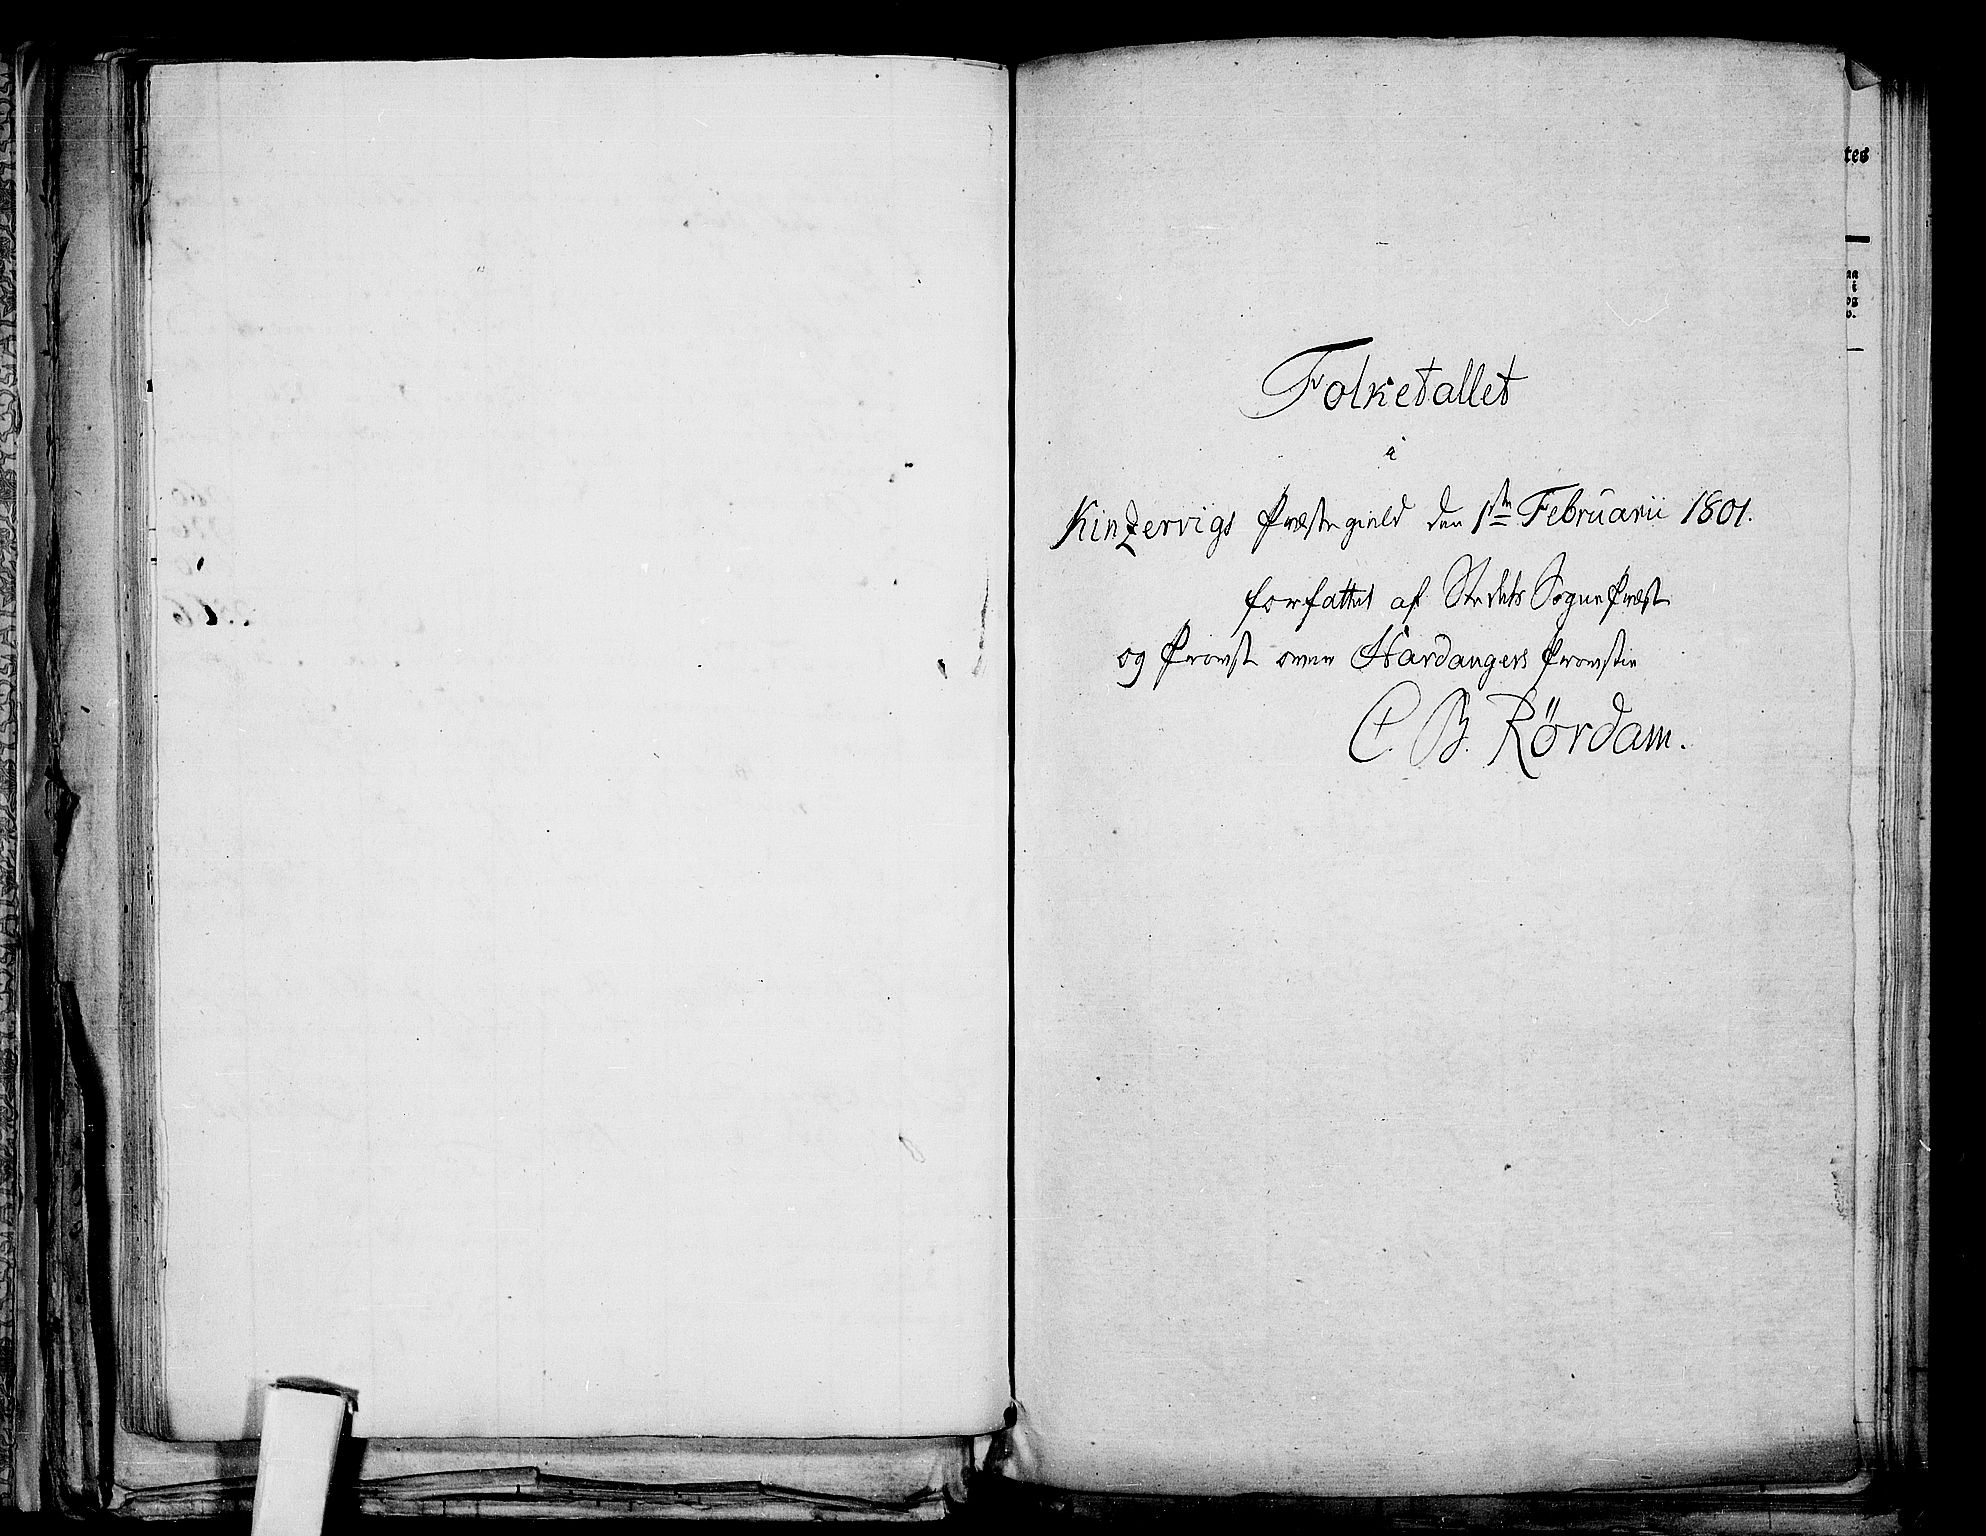 Folketallet
i
Kinzervigs Præstegield den 1ste Februarii 1801.
forfattet af Stedets SognePræst
og Provst over Hardangers Provstie
C. B. Rördam.
tes